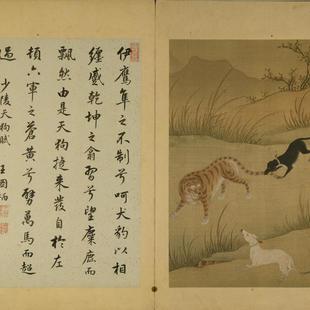 伊鷹隼之不制兮呵犬豹以相
纏蹙乾坤之翕習兮望麋鹿而
飄然由是天狗捷來發自於左
頓六軍之蒼黃兮劈萬馬而超
過 少陵天狗賦 王圖炳